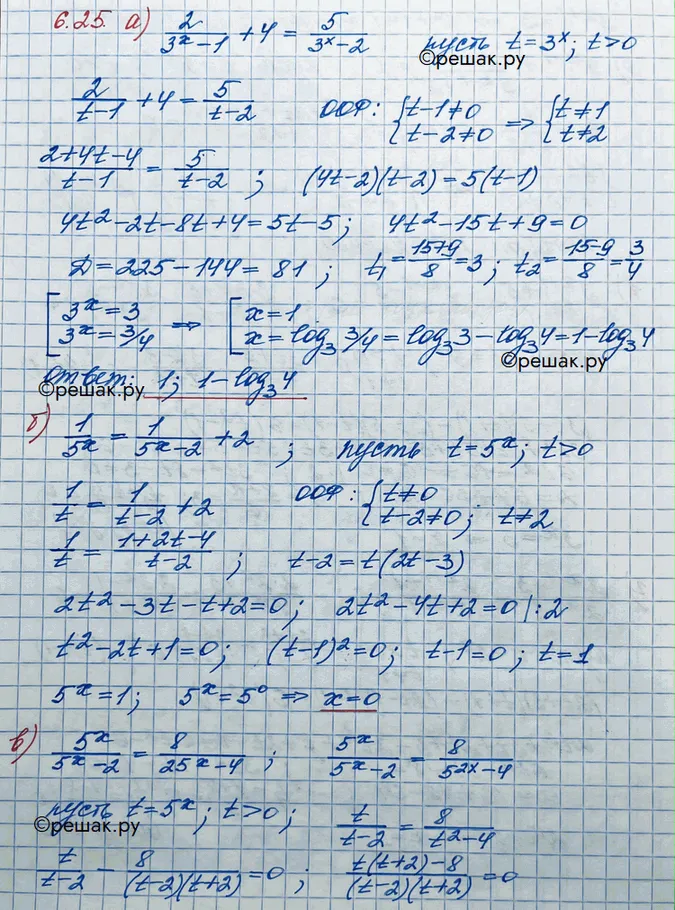 6.25. а) 2/(3^x-1) + 4 = 5/(3^x-2) пусть t=3^x; t>0
©решак.ру
2/(t-1) + 4 = 5/(t-2) ООФ: {t-1≠0 {t-2≠0 => {t≠1 {t≠2
(2+4t-4)/(t-1) = 5/(t-2); (4t-2)(t-2)=5(t-1)
4t²-2t-8t+4=5t-5; 4t²-15t+9=0
D=225-144=81; t₁=(15+9)/8=3; t₂=(15-9)/8=3/4
[3^x=3 [3^x=3/4 => [x=1 [x=log₃3/4=log₃3-log₃4=1-log₃4
©решак.ру
ответ: 1; 1-log₃4
©решак.ру
б) 1/5^x = 1/(5^x-2) + 2; пусть t=5^x; t>0
©решак.ру
1/t = 1/(t-2) + 2 ООФ: {t≠0 {t-2≠0; t≠2
1/t = (1+2t-4)/(t-2); t-2=t(2t-3)
2t²-3t-t+2=0; 2t²-4t+2=0 |:2
t²-2t+1=0; (t-1)²=0; t-1=0; t=1
5^x=1; 5^x=5⁰ => x=0
в) 5^x/(5^x-2) = 8/(25^x-4); 5^x/(5^x-2) = 8/(5^2x-4)
пусть t=5^x; t>0; t/(t-2) = 8/(t²-4)
©решак.ру
t/(t-2) - 8/((t-2)(t+2)) = 0; (t(t+2)-8)/((t-2)(t+2)) = 0